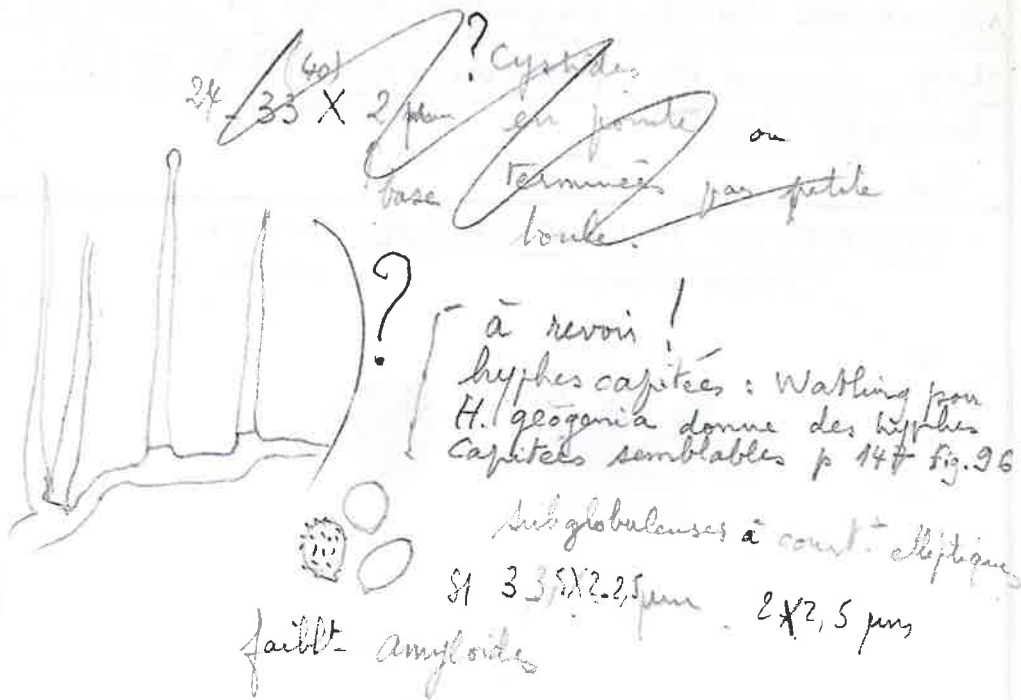 ? Cystides
(40)
24 - 33 X 2 µm en pointe ou
base terminées par petite
boule.
?
à revoir !
hyphes capitées : Watling pour
H. géogénia donne des hyphes
Capitées semblables p 147 fig. 96
subglobuleuses à court elliptiques
3 3,5X2-2,5 µm 2X2,5 µm
faiblt amyloides